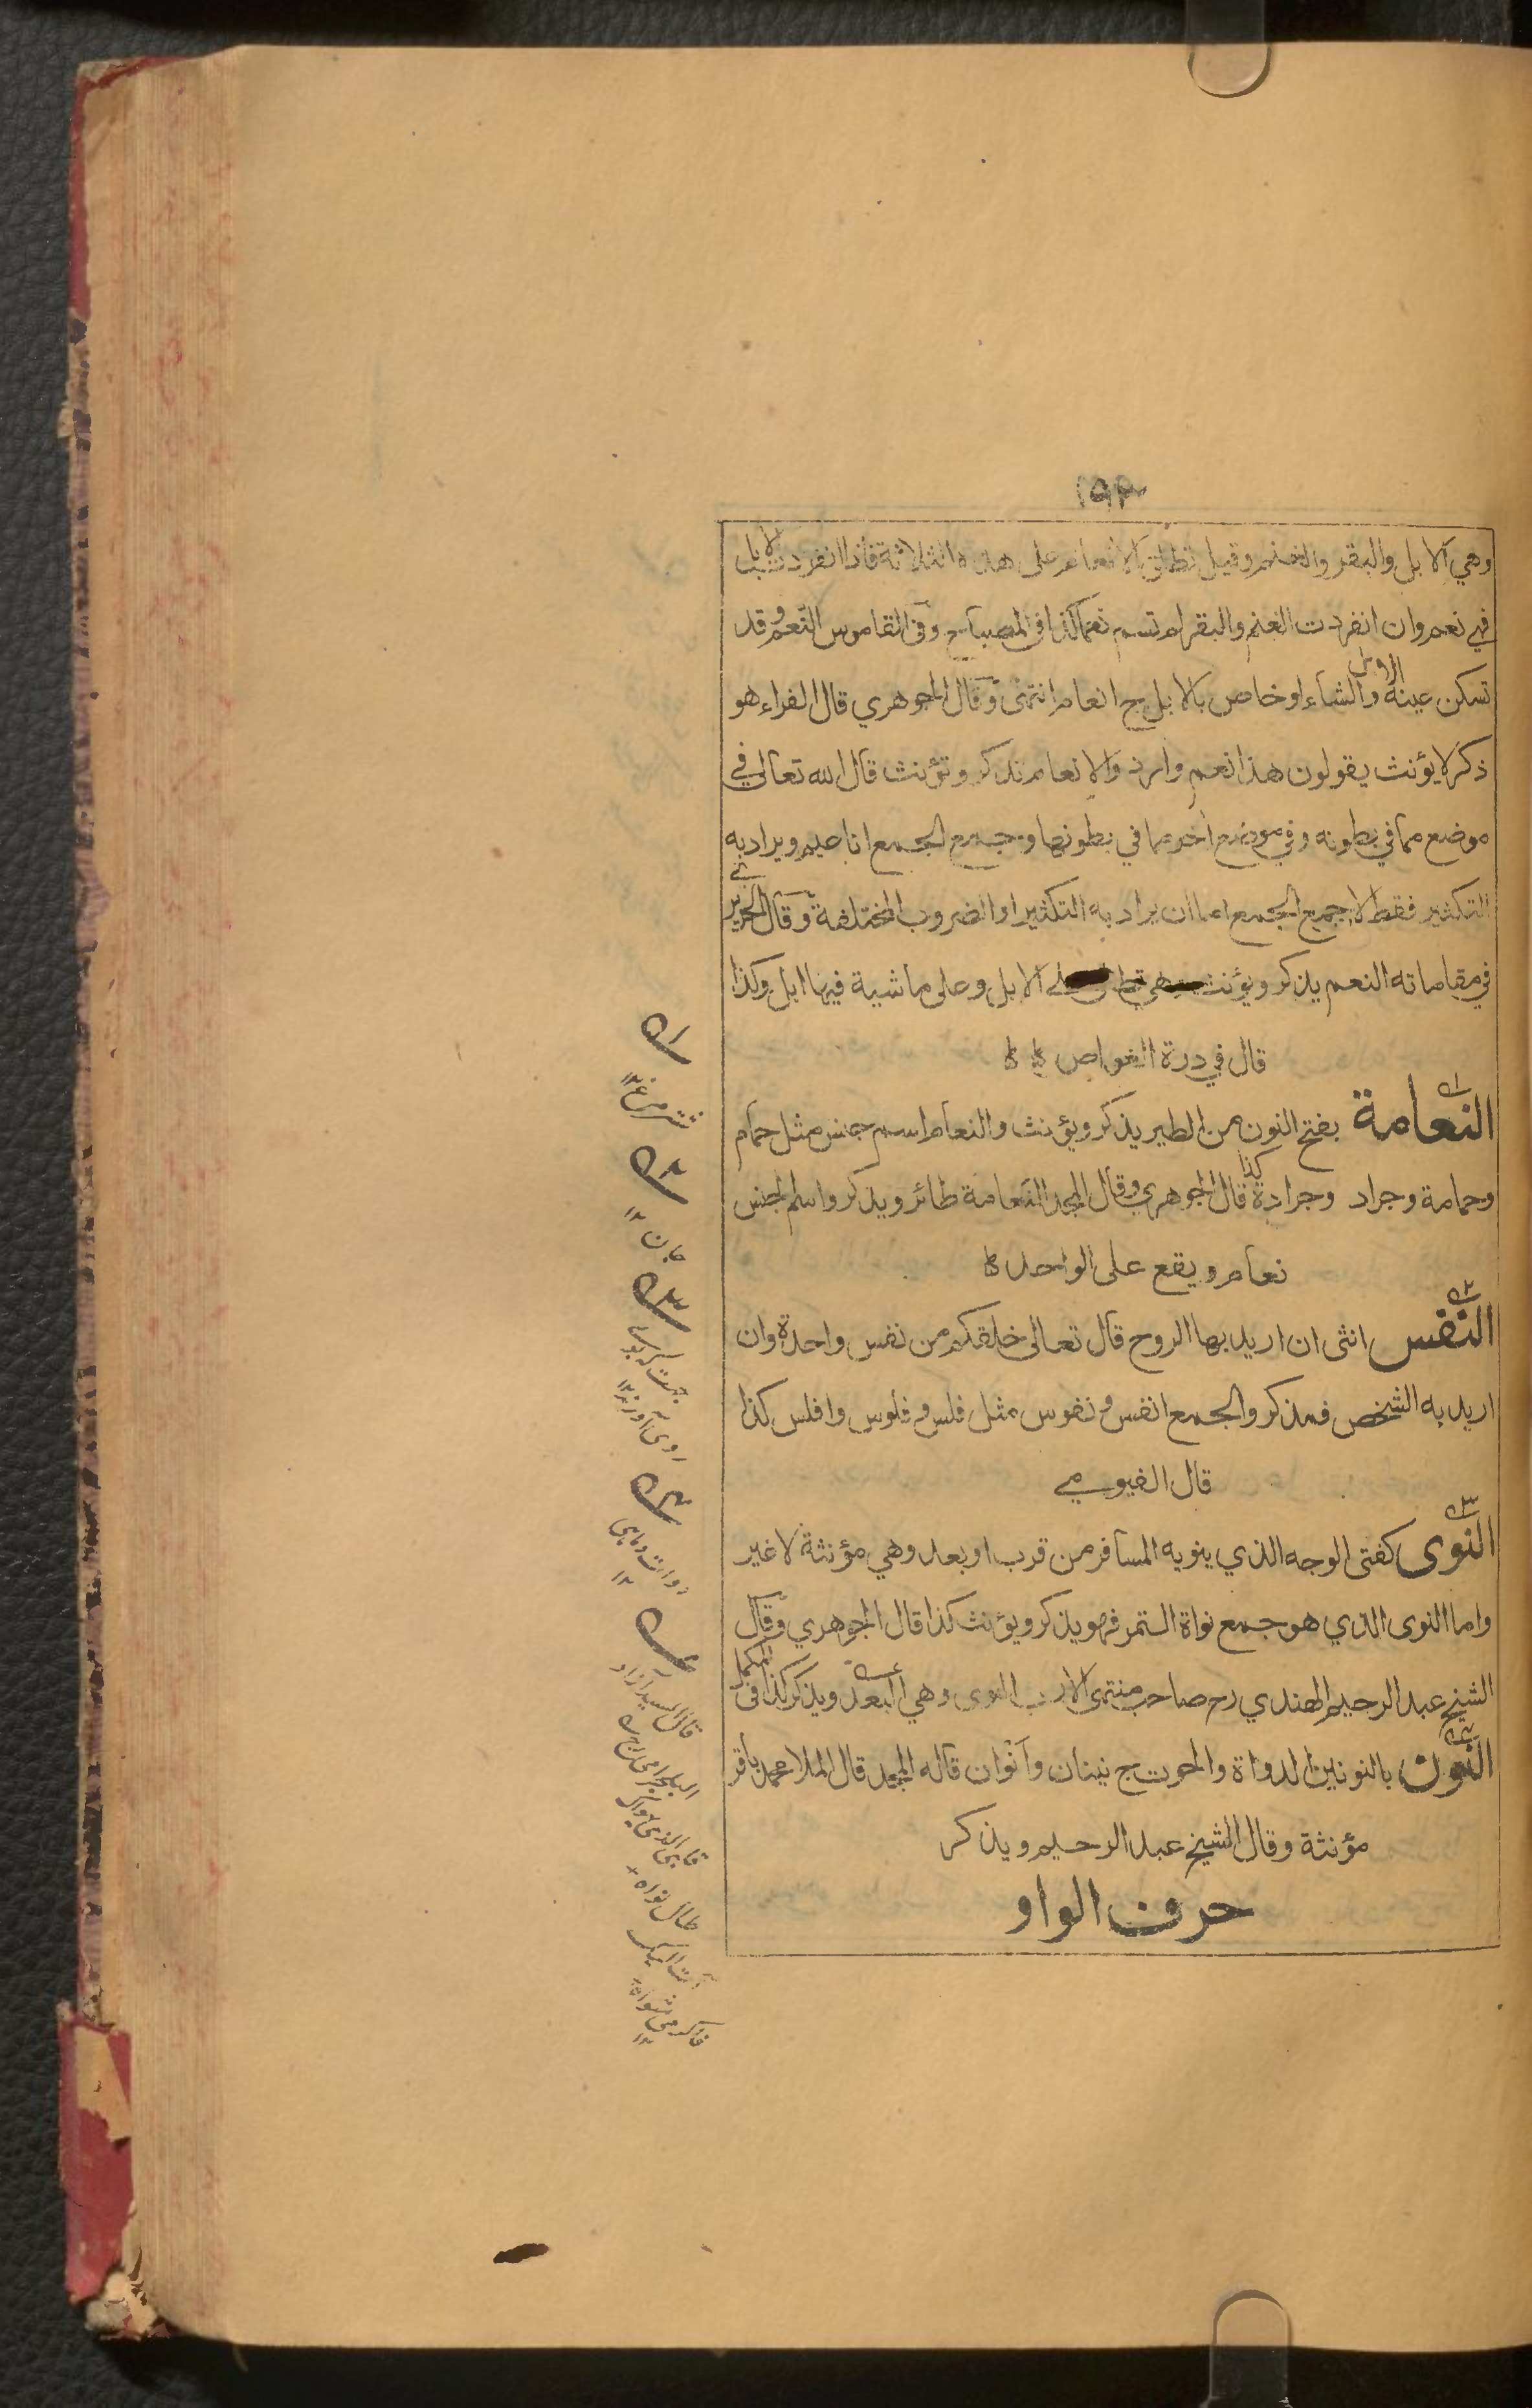 ١٩٣
وهي الابل والبقر والغنم وقيل تطلق الانعام على هذه الثلاثة فاذا انفردت الابل
فهي نعم وان انفردت الغنم والبقر لم تسم نعما كذا في المصباح وفي القاموس النعم وقد
تسكن عينه الابل والشاء او خاص بالابل ج انعام انتهى وقال الجوهري قال الفراء هو
ذكر لا يؤنث يقولون هذا نعم وارد والانعام تذكر وتؤنث قال الله تعالى في
موضع مما في بطونه وفي موضع آخر مما في بطونها وجمع الجمع اناعيم ويراد به
التكثير فقط لا جمع الجمع اما ان يراد به التكثير او الضروب المختلفة وقال الحريري
في مقاماته النعم يذكر ويؤنث وهي تطلق على الابل وعلى ماشية فيها ابل وكذا
قال في درة الغواص
النعامة بفتح النون من الطير يذكر ويؤنث والنعام اسم جنس مثل حمام
وحمامة وجراد وجرادة كذا قال الجوهري وقال المجد النعامة طائر ويذكر واسم الجنس
نعام ويقع على الواحد
النفس انثى ان اريد بها الروح قال تعالى خلقكم من نفس واحدة وان
اريد به الشخص فمذكر والجمع انفس ونفوس مثل فلس وفلوس وافلس كذا
قال الفيومي
النوى كفتى الوجه الذي ينويه المسافر من قرب او بعد وهي مؤنثة لا غير
واما النوى الذي هو جمع نواة التمر فهو يذكر ويؤنث كذا قال الجوهري وقال
الشيخ عبد الرحيم الهندي رح صاحب منتهى الارب النوى وهي البعد ويذكر كذا في المكمل
النون بالنونين الدواة والحوت ج نينان وانوان قاله المجد قال الملا محمد باقر
مؤنثة وقال الشيخ عبد الرحيم ويذكر
حرف الواو
١
شتر مرغ ١٢
٢
جان ١٢
٣
روى آورند ١٢
٤
دوات وماهى
١٢
قال السيد آزاد
البلجرامى
طال نواه
١٢